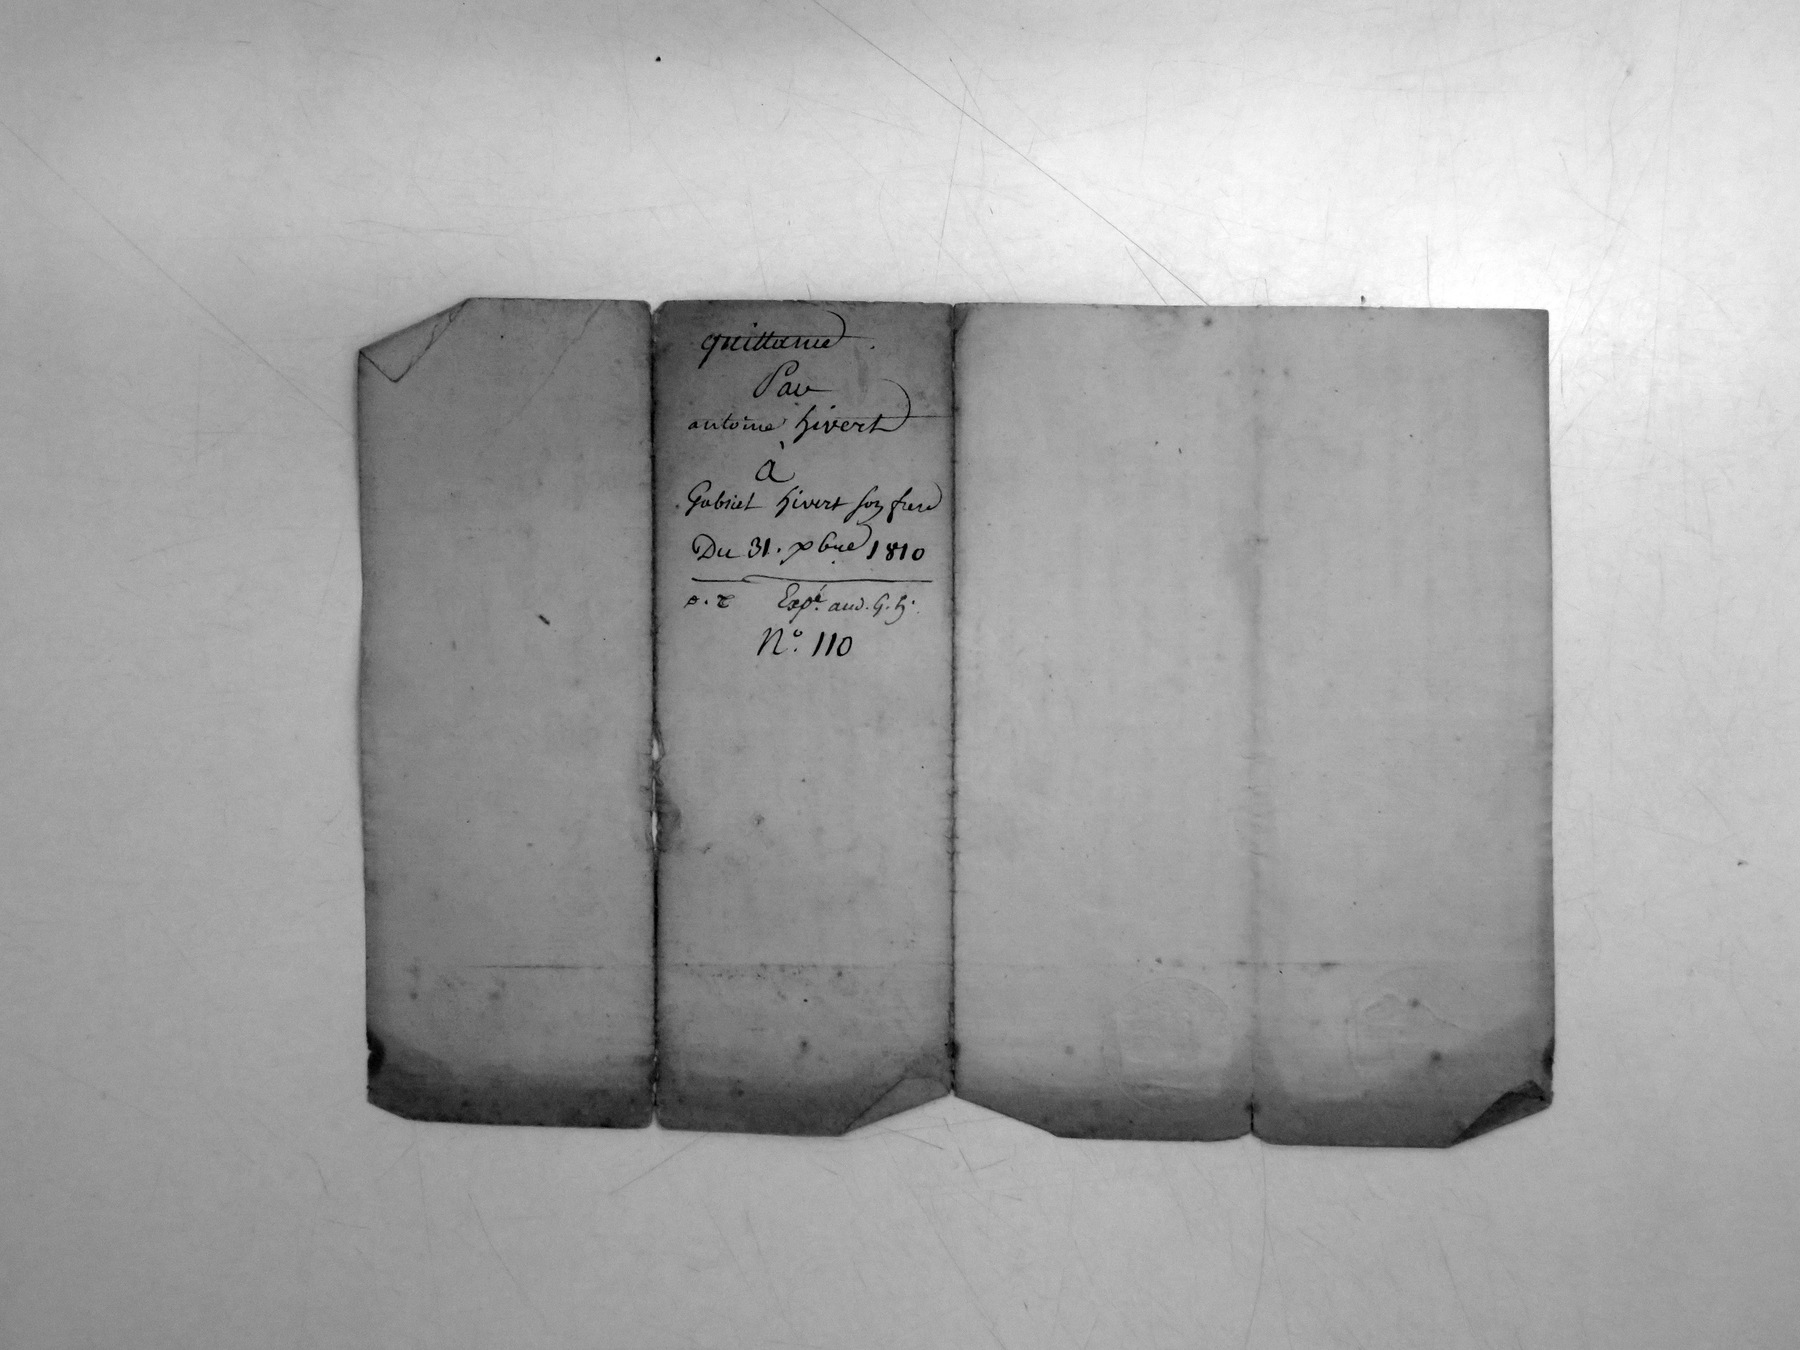 quittance.
Par
antoine hivert
à
Gabriel hivert son frere
Du 31. xbre 1810
Expé. aud. G. h.
N.° 110